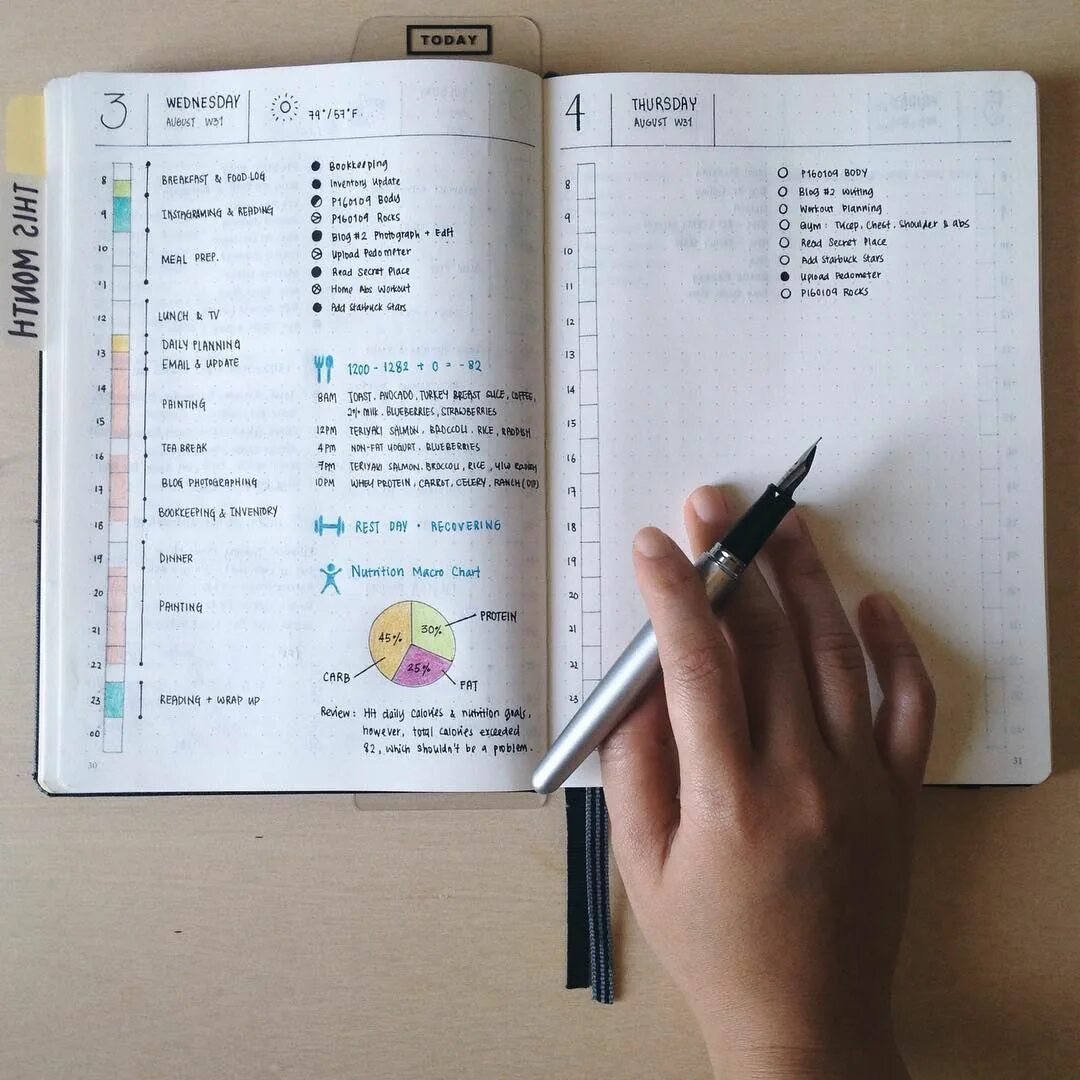 TODAY
THIS MONTH
3
WEDNESDAY
AUGUST W31
79°/57°F
8
9
10
11
12
13
14
15
16
17
18
19
20
21
22
23
00
BREAKFAST & FOOD LOG
INSTAGRAMING & READING
MEAL PREP.
LUNCH & TV
DAILY PLANNING
EMAIL & UPDATE
PAINTING
TEA BREAK
BLOG PHOTOGRAPHING
BOOKKEEPING & INVENTORY
DINNER
PAINTING
READING + WRAP UP
Bookkeeping
Inventory Update
P160109 Body
P160109 Rocks
Blog #2 Photograph + Edit
Upload Pedometer
Read Secret Place
Home Abs Workout
Add Starbuck Stars
1200 - 1282 + 0 = -82
8AM TOAST, AVOCADO, TURKEY BREAST SLICE, COFFEE,
2% milk, BLUEBERRIES, STRAWBERRIES
12PM TERIYAKI SALMON, BROCCOLI, RICE, RADDISH
4PM NON-FAT YOGURT, BLUEBERRIES
7PM TERIYAKI SALMON, BROCCOLI, RICE,
10PM WHEY PROTEIN, CARROT, CELERY, RANCH (DIP)
REST DAY • RECOVERING
Nutrition Macro Chart
45%
30%
25%
PROTEIN
CARB
FAT
Review: Hit daily calories & nutrition goals,
however, total calories exceeded
82, which shouldn't be a problem.
30
4
THURSDAY
AUGUST W31
8
9
10
11
12
13
14
15
16
17
18
19
20
21
22
23
P160109 BODY
Blog #2 Writing
Workout Planning
Gym: Tricep, Chest, Shoulder & abs
Read Secret Place
Add Starbuck Stars
Upload Pedometer
P160109 ROCKS
31